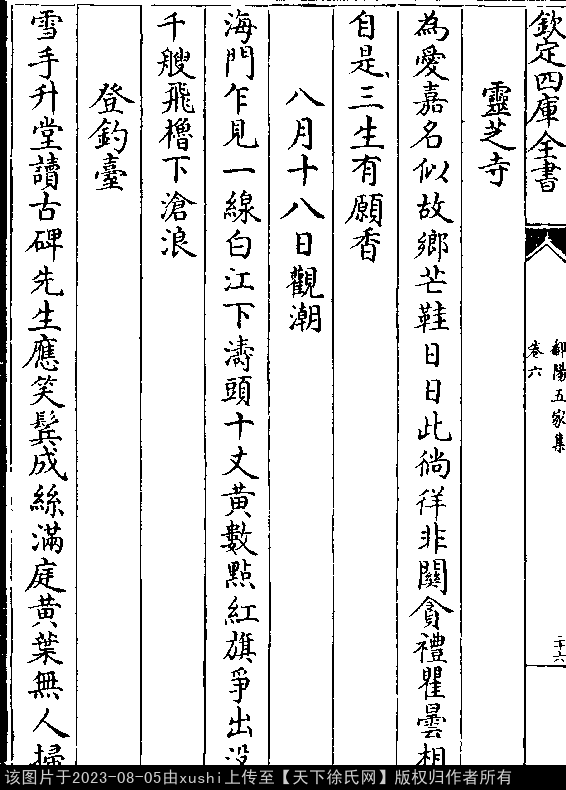 欽定四庫全書
鄱陽五家集
卷六
二十六
靈芝寺
為愛嘉名似故鄉芒鞋日日此徜徉非關貪禮瞿曇相
自是三生有願香
八月十八日觀潮
海門乍見一線白江下濤頭十丈黃數點紅旗爭出没
千艘飛櫓下滄浪
登釣臺
雪手升堂讀古碑先生應笑鬂成絲滿庭黃葉無人掃
该图片于2023-08-05由xushi上传至【天下徐氏网】版权归作者所有